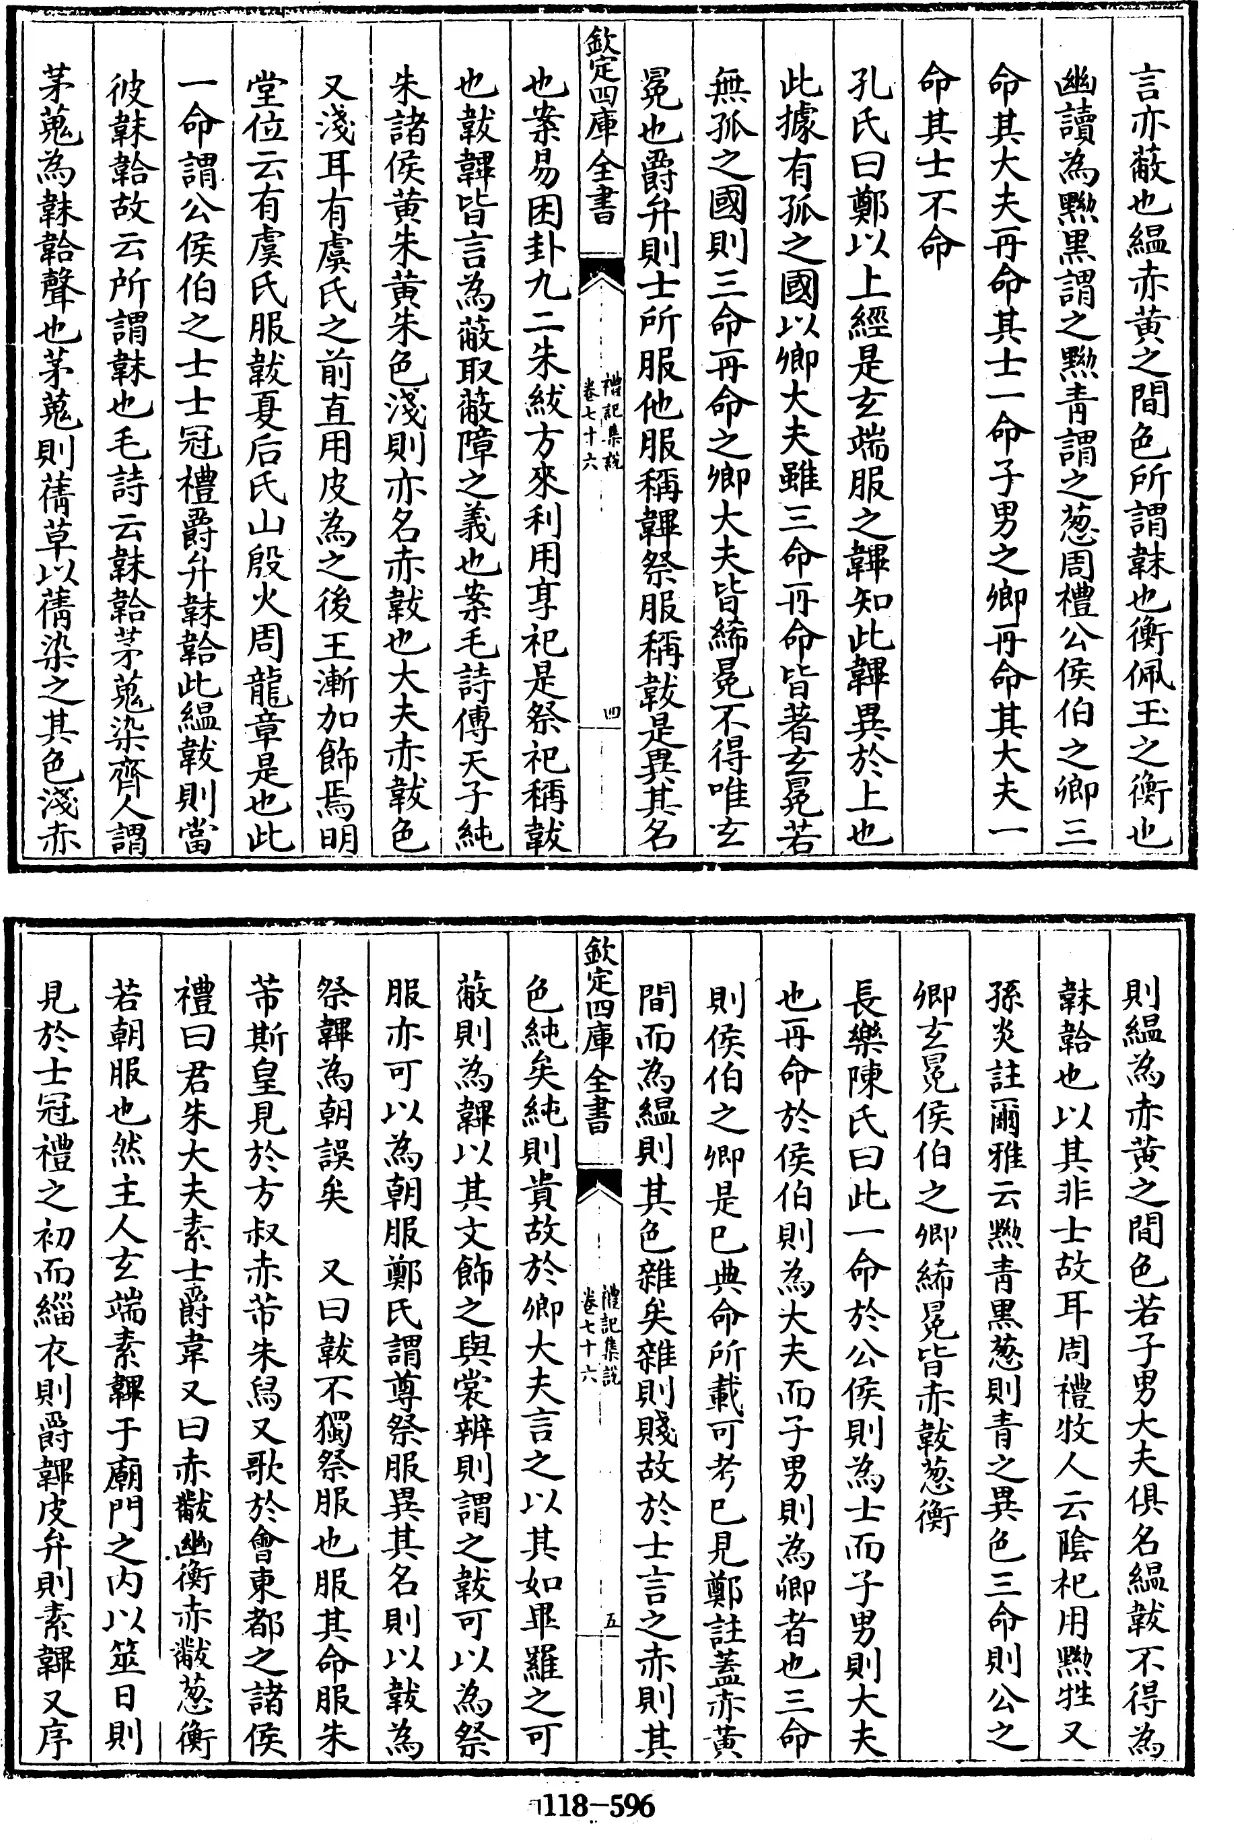 言亦蔽也緼赤黄之間色所謂韎也衡佩玉之衡也
幽讀為黝黒謂之黝青謂之葱周禮公侯伯之卿三
命其大夫再命其士一命子男之卿再命其大夫一
命其士不命
孔氏曰鄭以上經是玄端服之韠知此韠異於上也
此據有孤之國以卿大夫雖三命再命皆著玄冕若
無孤之國則三命再命之卿大夫皆絺冕不得唯玄
冕也爵弁則士所服他服稱韠祭服稱韍是異其名
欽定四庫全書
禮記集說
卷七十六
四
也案易困卦九二朱紱方來利用享祀是祭祀稱韍
也韍韠皆言為蔽取蔽障之義也案毛詩傳天子純
朱諸侯黄朱黄朱色淺則亦名赤韍也大夫赤韍色
又淺耳有虞氏之前直用皮為之後王漸加飾焉明
堂位云有虞氏服韍夏后氏山殷火周龍章是也此
一命謂公侯伯之士士冠禮爵弁韎韐此緼韍則當
彼韎韐故云所謂韎也毛詩云韎韐茅蒐染齊人謂
茅蒐為韎韐聲也茅蒐則蒨草以蒨染之其色淺赤
則緼為赤黄之間色若子男大夫俱名緼韍不得為
韎韐也以其非士故耳周禮牧人云陰祀用黝牲又
孫炎註爾雅云黝青黒葱則青之異色三命則公之
卿玄冕侯伯之卿絺冕皆赤韍葱衡
長樂陳氏曰此一命於公侯則為士而子男則大夫
也再命於侯伯則為大夫而子男則為卿者也三命
則侯伯之卿是已典命所載可考已見鄭註蓋赤黄
間而為緼則其色雜矣雜則賤故於士言之赤則其
欽定四庫全書
禮記集說
卷七十六
五
色純矣純則貴故於卿大夫言之以其如罼羅之可
蔽則為韠以其文飾之與裳辨則謂之韍可以為祭
服亦可以為朝服鄭氏謂尊祭服異其名則以韍為
祭韠為朝誤矣　又曰韍不獨祭服也服其命服朱
芾斯皇見於方叔赤芾朱舄又歌於會東都之諸侯
禮曰君朱大夫素士爵韋又曰赤韍幽衡赤韍葱衡
若朝服也然主人玄端素韠于廟門之内以筮日則
見於士冠禮之初而緇衣則爵韠皮弁則素韠又序
118-596